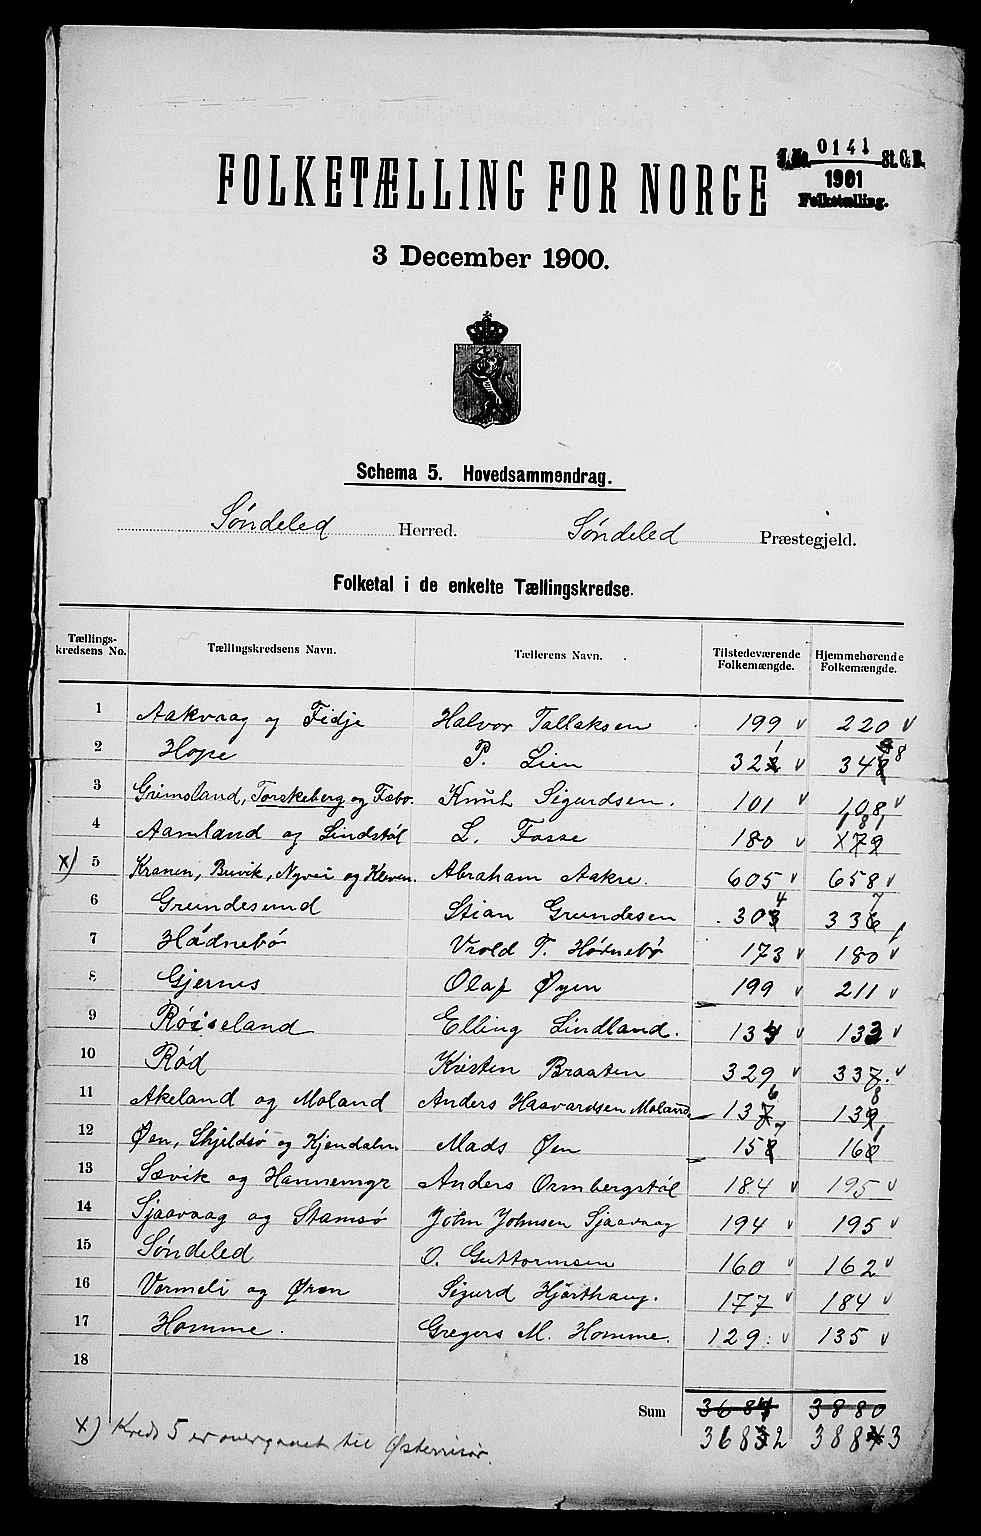 J.No. 0141 St.C.B.
1901
Folketælling.
FOLKETÆLLING FOR NORGE
3 December 1900.
Schema 5. Hovedsammendrag.
Søndeled Herred. Søndeled Præstegjeld.
Folketal i de enkelte Tællingskredse.
Tællings-kredsens No. Tællingskredsens Navn. Tællerens Navn. Tilstedeværende Folkemængde. Hjemmehørende Folkemængde.
1 Aakvaag og Fidje Halvor Tallaksen 199 v 220 v
2 Hope P. Lien 321 v 348
3 Grimsland, Torskeberg og Fæbo. Knut Sigurdsen. 101 v 108 v
4 Aamland og Lindstøl L. Fosse 180 v 181
x) 5 Kranen, Buvik, Nyvei og Kleven. Abraham Aakre. 605 v 658 v
6 Grundesund Stian Grundesen 304 337
7 Hødnebø Vrold T. Hødnebø 173 v 180 v
8 Gjernes Olaf Øyen 199 v 211 v
9 Røiseland Elling Lindland. 134 v 133 v
10 Rød Kristen Braaten 329 v 337. v
11 Akeland og Moland Anders Haavardsen Moland. 136 138
12 Øen, Skjeldsø og Kjendalen Mads Øen 157 161
13 Sævik og Hannemyr Anders Ormbergstøl 184 v 195 v
14 Sjaavaag og Stamsø John Johnsen Sjaavaag 194 v 195 v
15 Søndeled O. Guttormsen 160 v 162 v
16 Vormeli og Øren Sigurd Hjorthaug. 177 v 184 v
17 Homme. Gregers M. Homme. 129 v 135 v
18
Sum 3684 3880
3682 3883
x) Kreds 5 er overgaaet til Østerrisør.